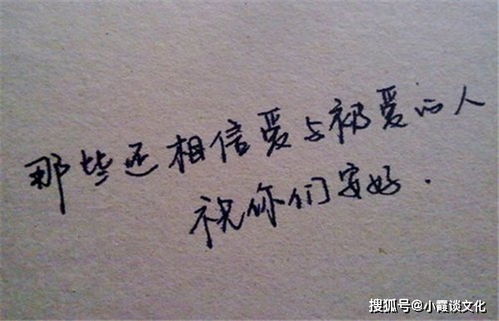 那些还相信爱与被爱的人
祝你们安好.
搜狐号@小霞谈文化